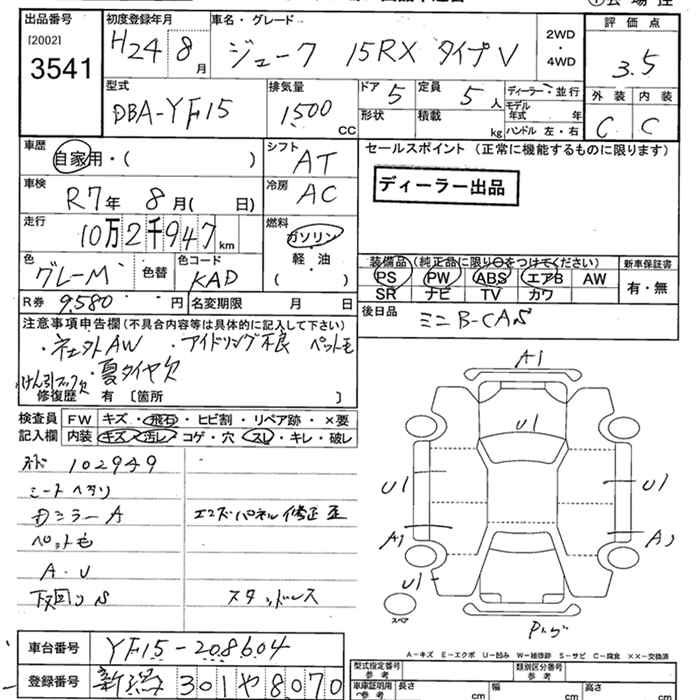 出品番号
[2002]
3541
初度登録年月
H24 8月
車名・グレード
ジューク 15RX タイプV
2WD
・
4WD
評価点
3.5
外装 内装
C C
型式
DBA-YF15
排気量
1500
CC
ドア 5
定員 5人
ディーラー・並行
形状
積載 kg
モデル年式 年
ハンドル 左・右
車歴
自家用・( )
シフト
AT
セールスポイント (正常に機能するものに限ります)
ディーラー出品
車検
R7年 8月( 日)
冷房
AC
走行
10万2千947km
燃料
ガソリン
軽・油
( )
色
グレーM
色替
色コード
KAD
装備品(純正品に限り○をつけてください)
PS PW ABS エアB AW
SR ナビ TV カワ
新車保証書
有・無
R券 9,580円
名変期限 月 日
後日品
ミニB-CAS
注意事項申告欄(不具合内容等は具体的に記入して下さい)
・ネェ外AW ・アイドリング不良 ペット毛
けん引フック欠 ・夏タイヤ欠
修復歴 有 〔箇所 〕
検査員
記入欄
FW キズ・飛石・ヒビ割・リペア跡・×要
内装 キズ・汚レ・コゲ・穴・スレ・キレ・破レ
102949
シートヘタリ
ペット毛
A・U
下回りS
エンドパネル修正歪
スタッドレス
A1
U1
U1
U1
A1
U1
スペア
A-キズ E-エクボ U-凹み W-補修跡 S-サビ C-腐食 ××-交換済
車台番号
YF15-208604
登録番号
新潟 301 や 8070
型式指定番号
参考
類別区分番号
参考
車庫証明用
参考
長さ cm
幅 cm
高さ cm